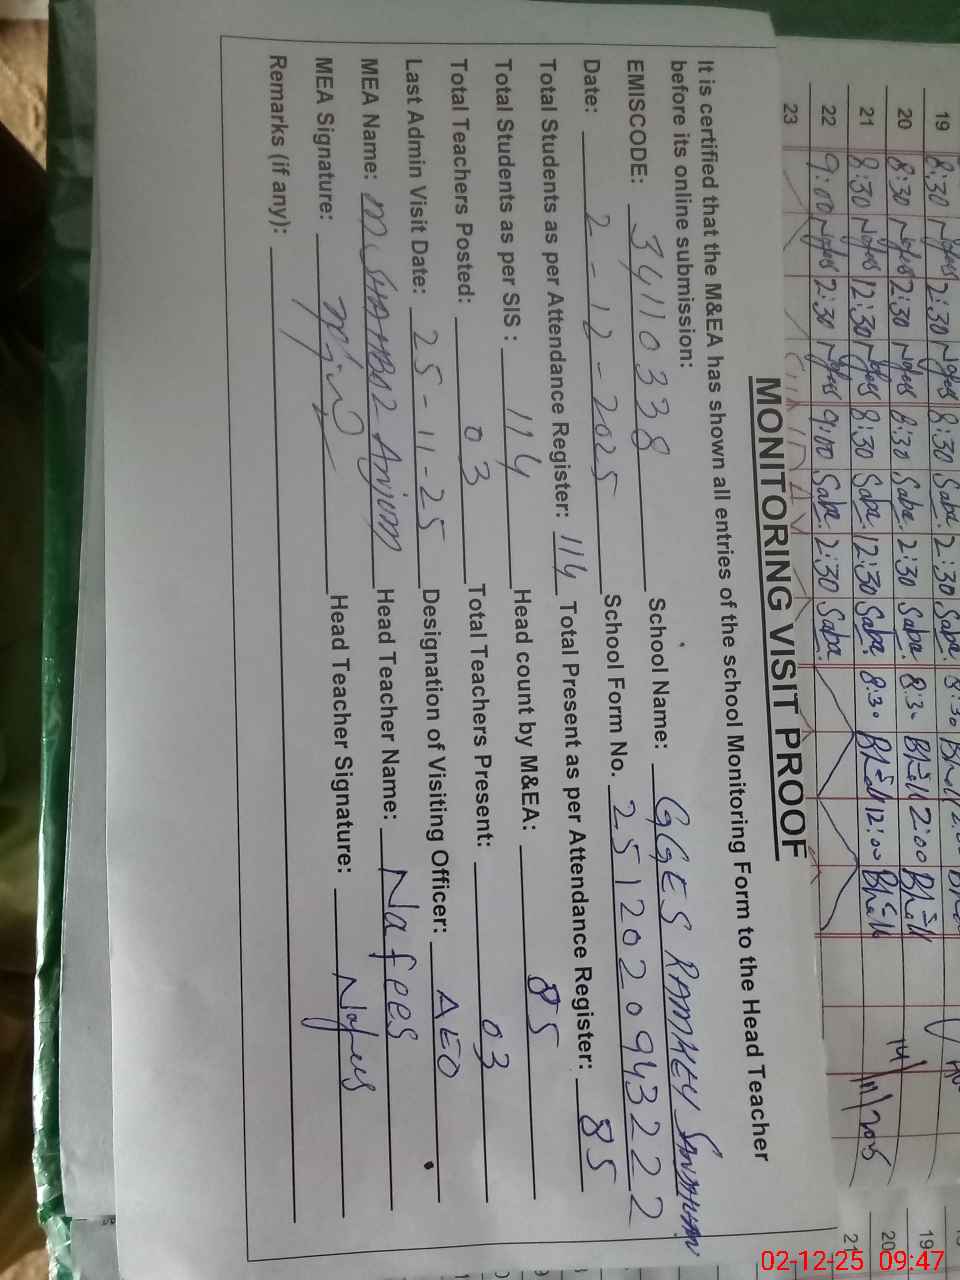 MONITORING VISIT PROOF
It is certified that the M&EA has shown all entries of the school Monitoring Form to the Head Teacher
before its online submission:
EMISCODE: 34110338 School Name: GGES RAMKEY SANDHUAN
Date: 2-12-2025 School Form No. 2512020943222
Total Students as per Attendance Register: 114 Total Present as per Attendance Register: 85
Total Students as per SIS : 114 Head count by M&EA: 85
Total Teachers Posted: 03 Total Teachers Present: 03
Last Admin Visit Date: 25-11-25 Designation of Visiting Officer: AEO
MEA Name: M. SHAHBAZ Anjum Head Teacher Name: Nafees
MEA Signature: Head Teacher Signature: Nafees
Remarks (if any):
19 8:30 Nafees 2:30 Nafees 8:30 Saba. 2:30 Saba. 8:30
20 8:30 Nafees 2:30 Nafees 8:30 Saba. 2:30 Saba. 8:30 2:00
21 8:30 Nafees 12:30 Nafees 8:30 Saba. 12:30 Saba. 8:30 12:00
22 9:00 Nafees 2:30 Nafees 9:00 Saba. 2:30 Saba.
23
19
20
21
02-12-25 09:47